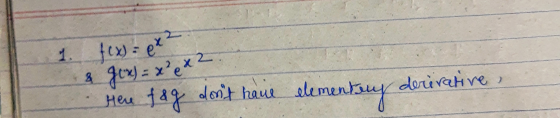 1. f(x) = e^x^2
& g(x) = x^2 e^x^2.
Here f & g don't have elementary derivative,